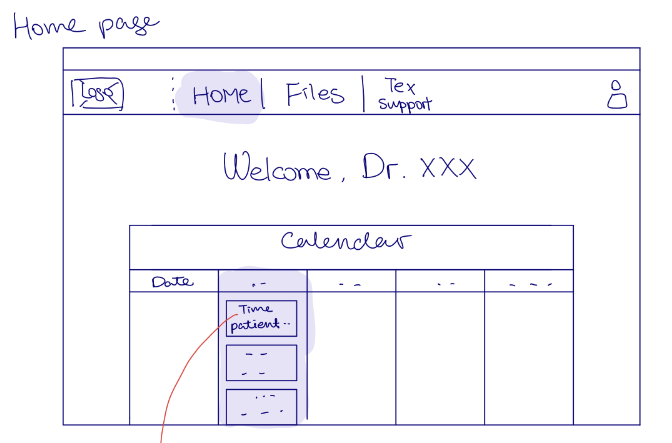 Home page
Logo
HOMe
Files
Tex
Support
Welcome, Dr. XXX
Calendar
Date
Time
patient..